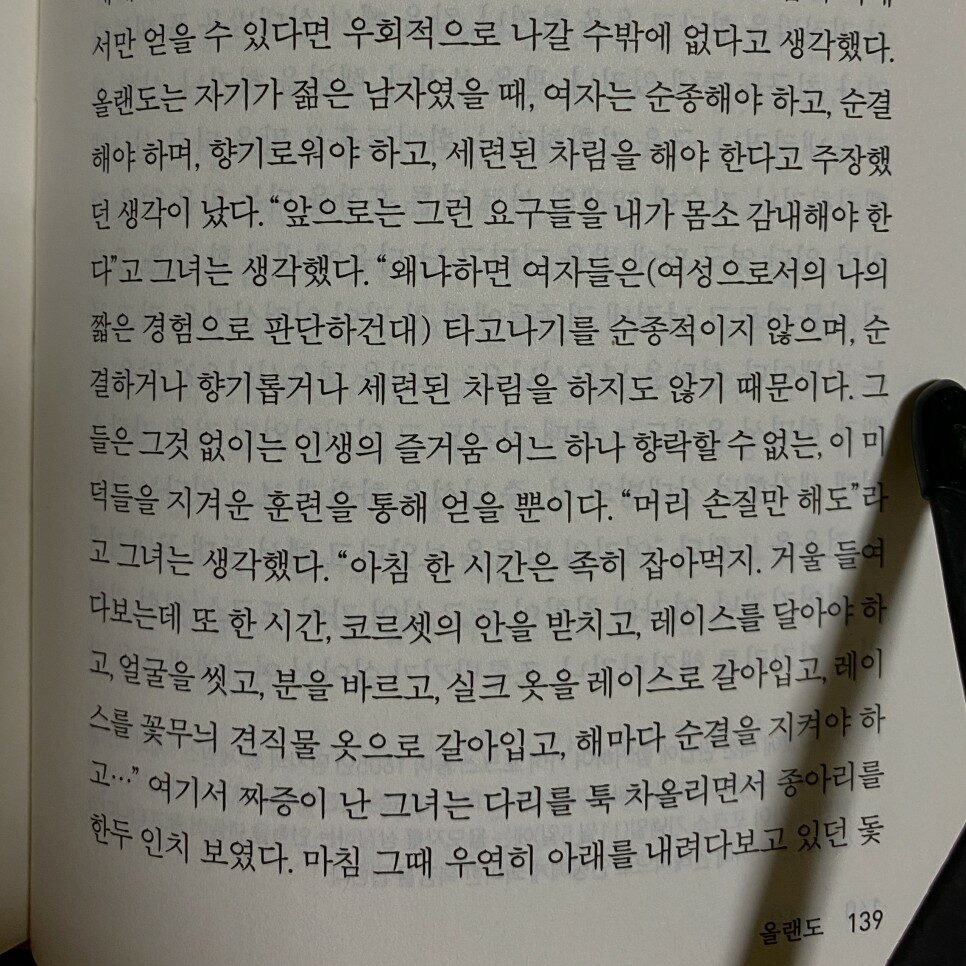 서만 얻을 수 있다면 우회적으로 나갈 수밖에 없다고 생각했다.
올랜도는 자기가 젊은 남자였을 때, 여자는 순종해야 하고, 순결
해야 하며, 향기로워야 하고, 세련된 차림을 해야 한다고 주장했
던 생각이 났다. “앞으로는 그런 요구들을 내가 몸소 감내해야 한
다”고 그녀는 생각했다. “왜냐하면 여자들은(여성으로서의 나의
짧은 경험으로 판단하건대) 타고나기를 순종적이지 않으며, 순
결하거나 향기롭거나 세련된 차림을 하지도 않기 때문이다. 그
들은 그것 없이는 인생의 즐거움 어느 하나 향락할 수 없는, 이 미
덕들을 지겨운 훈련을 통해 얻을 뿐이다. “머리 손질만 해도”라
고 그녀는 생각했다. “아침 한 시간은 족히 잡아먹지. 거울 들여
다보는데 또 한 시간, 코르셋의 안을 받치고, 레이스를 달아야 하
고, 얼굴을 씻고, 분을 바르고, 실크 옷을 레이스로 갈아입고, 레이
스를 꽃무늬 견직물 옷으로 갈아입고, 해마다 순결을 지켜야 하
고…” 여기서 짜증이 난 그녀는 다리를 툭 차올리면서 종아리를
한두 인치 보였다. 마침 그때 우연히 아래를 내려다보고 있던 돛
올랜도 139